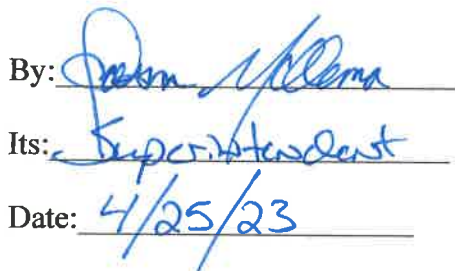 By: Jason Mellema
Its: Superintendent
Date: 4/25/23